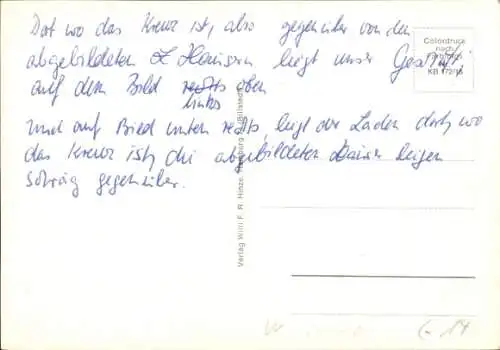 Dort wo das Kreuz ist, also gegenüber von den
abgebildeten 2 Häusern liegt unser Geschäft,
auf dem Bild rechts oben
links
und auf Bild unten rechts liegt der Laden dort, wo
das Kreuz ist, die abgebildeten Häuser liegen
schräg gegenüber.
Colordruck
nach
KB 172/15
Verlag Willi F. R. Hinze, Hamburg